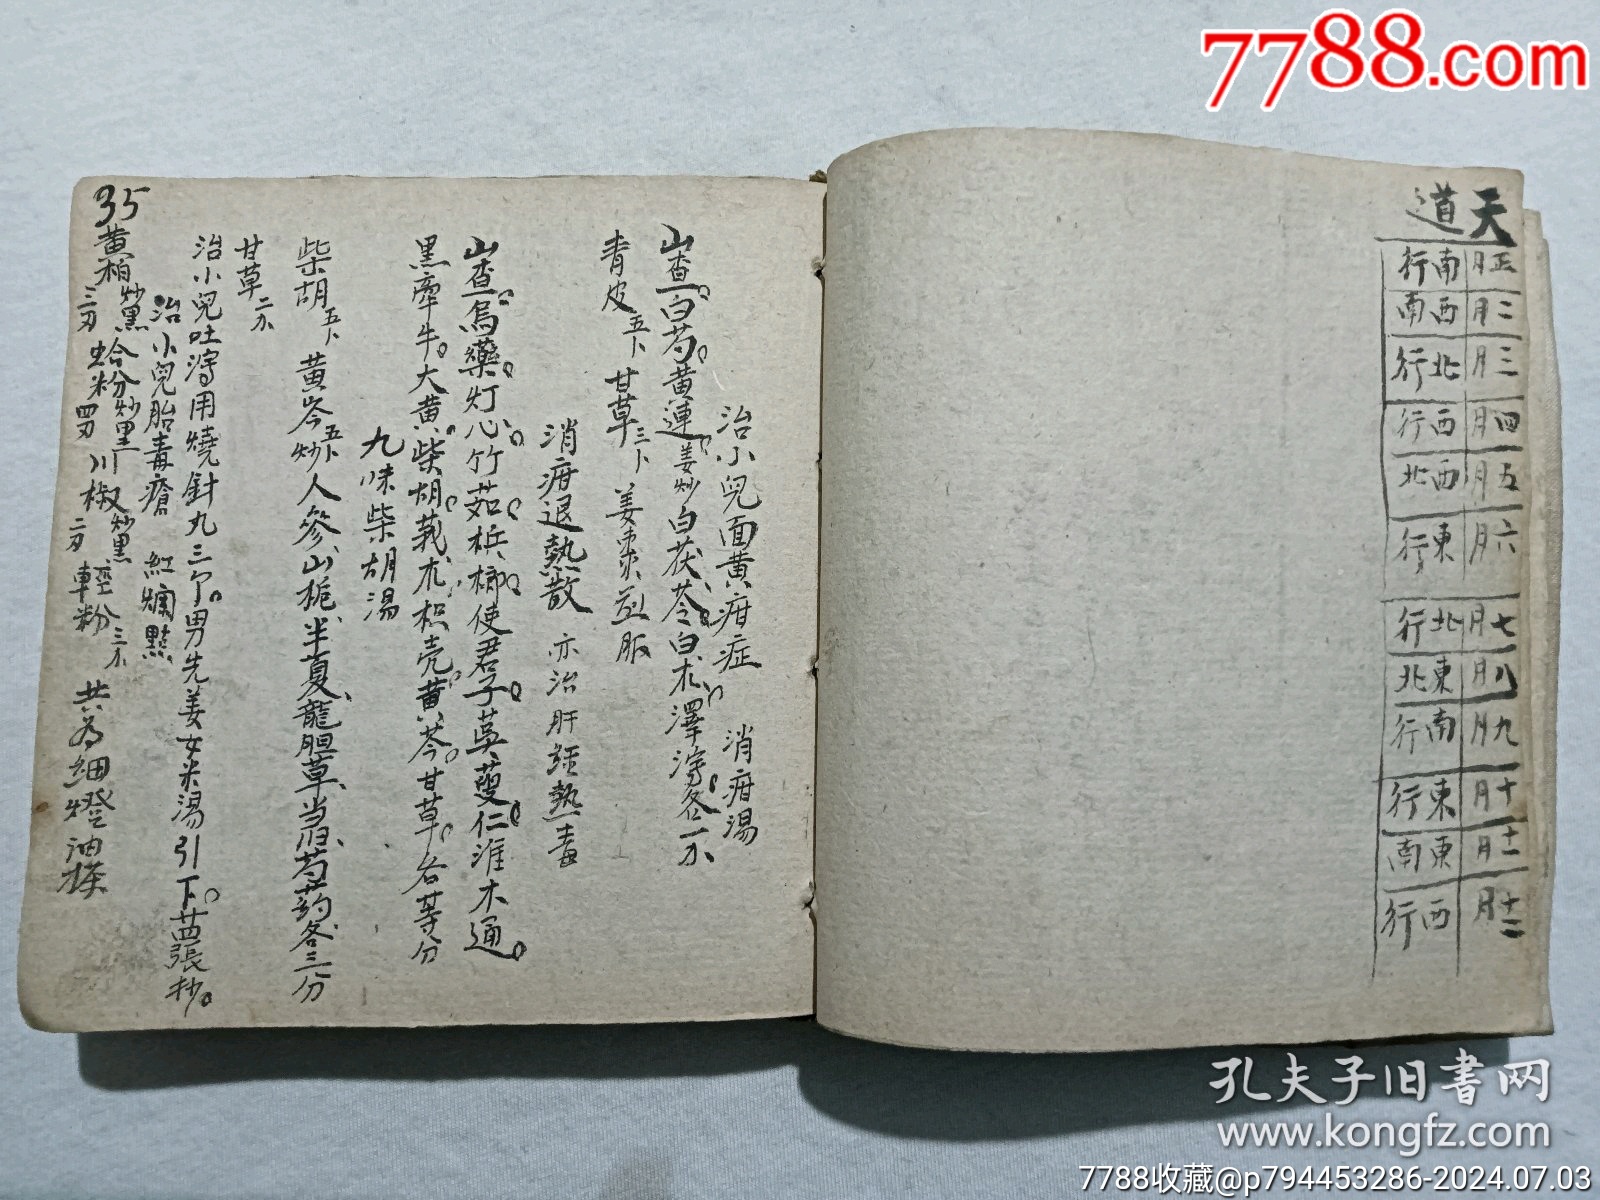 7788.com
天道
正月 南行
二月 西南
三月 北行
四月 西行
五月 西北
六月 東行
七月 北行
八月 東北
九月 南行
十月 東行
十一月 東南
十二月 西行
治小兒面黄疳症 消疳湯
山查 白芍 黄連姜炒 白茯苓 白朮 澤瀉各一
青皮五卜 甘草三卜 姜棗 服
消疳退熱散 亦治肝經熱毒
山查 烏藥 灯心 竹茹 梹榔 使君子 蔓仁 淮木通
黑牽牛 大黄 柴胡 莪朮 枳壳 黄芩 甘草 各等分
九味柴胡湯
柴胡五卜 黄岑炒五卜 人參 山梔 半夏 龍胆草 当归 芍药各三分
甘草二
治小兒吐瀉用燒針丸三个 男先姜女米湯引下 張抄
治小兒胎毒瘡 紅爛點
35
黄柏炒黑三 蛤粉炒黑四 川椒炒黑二 輕粉三 共為細 油搽
孔夫子旧書网
www.kongfz.com
7788收藏@p794453286-2024.07.03